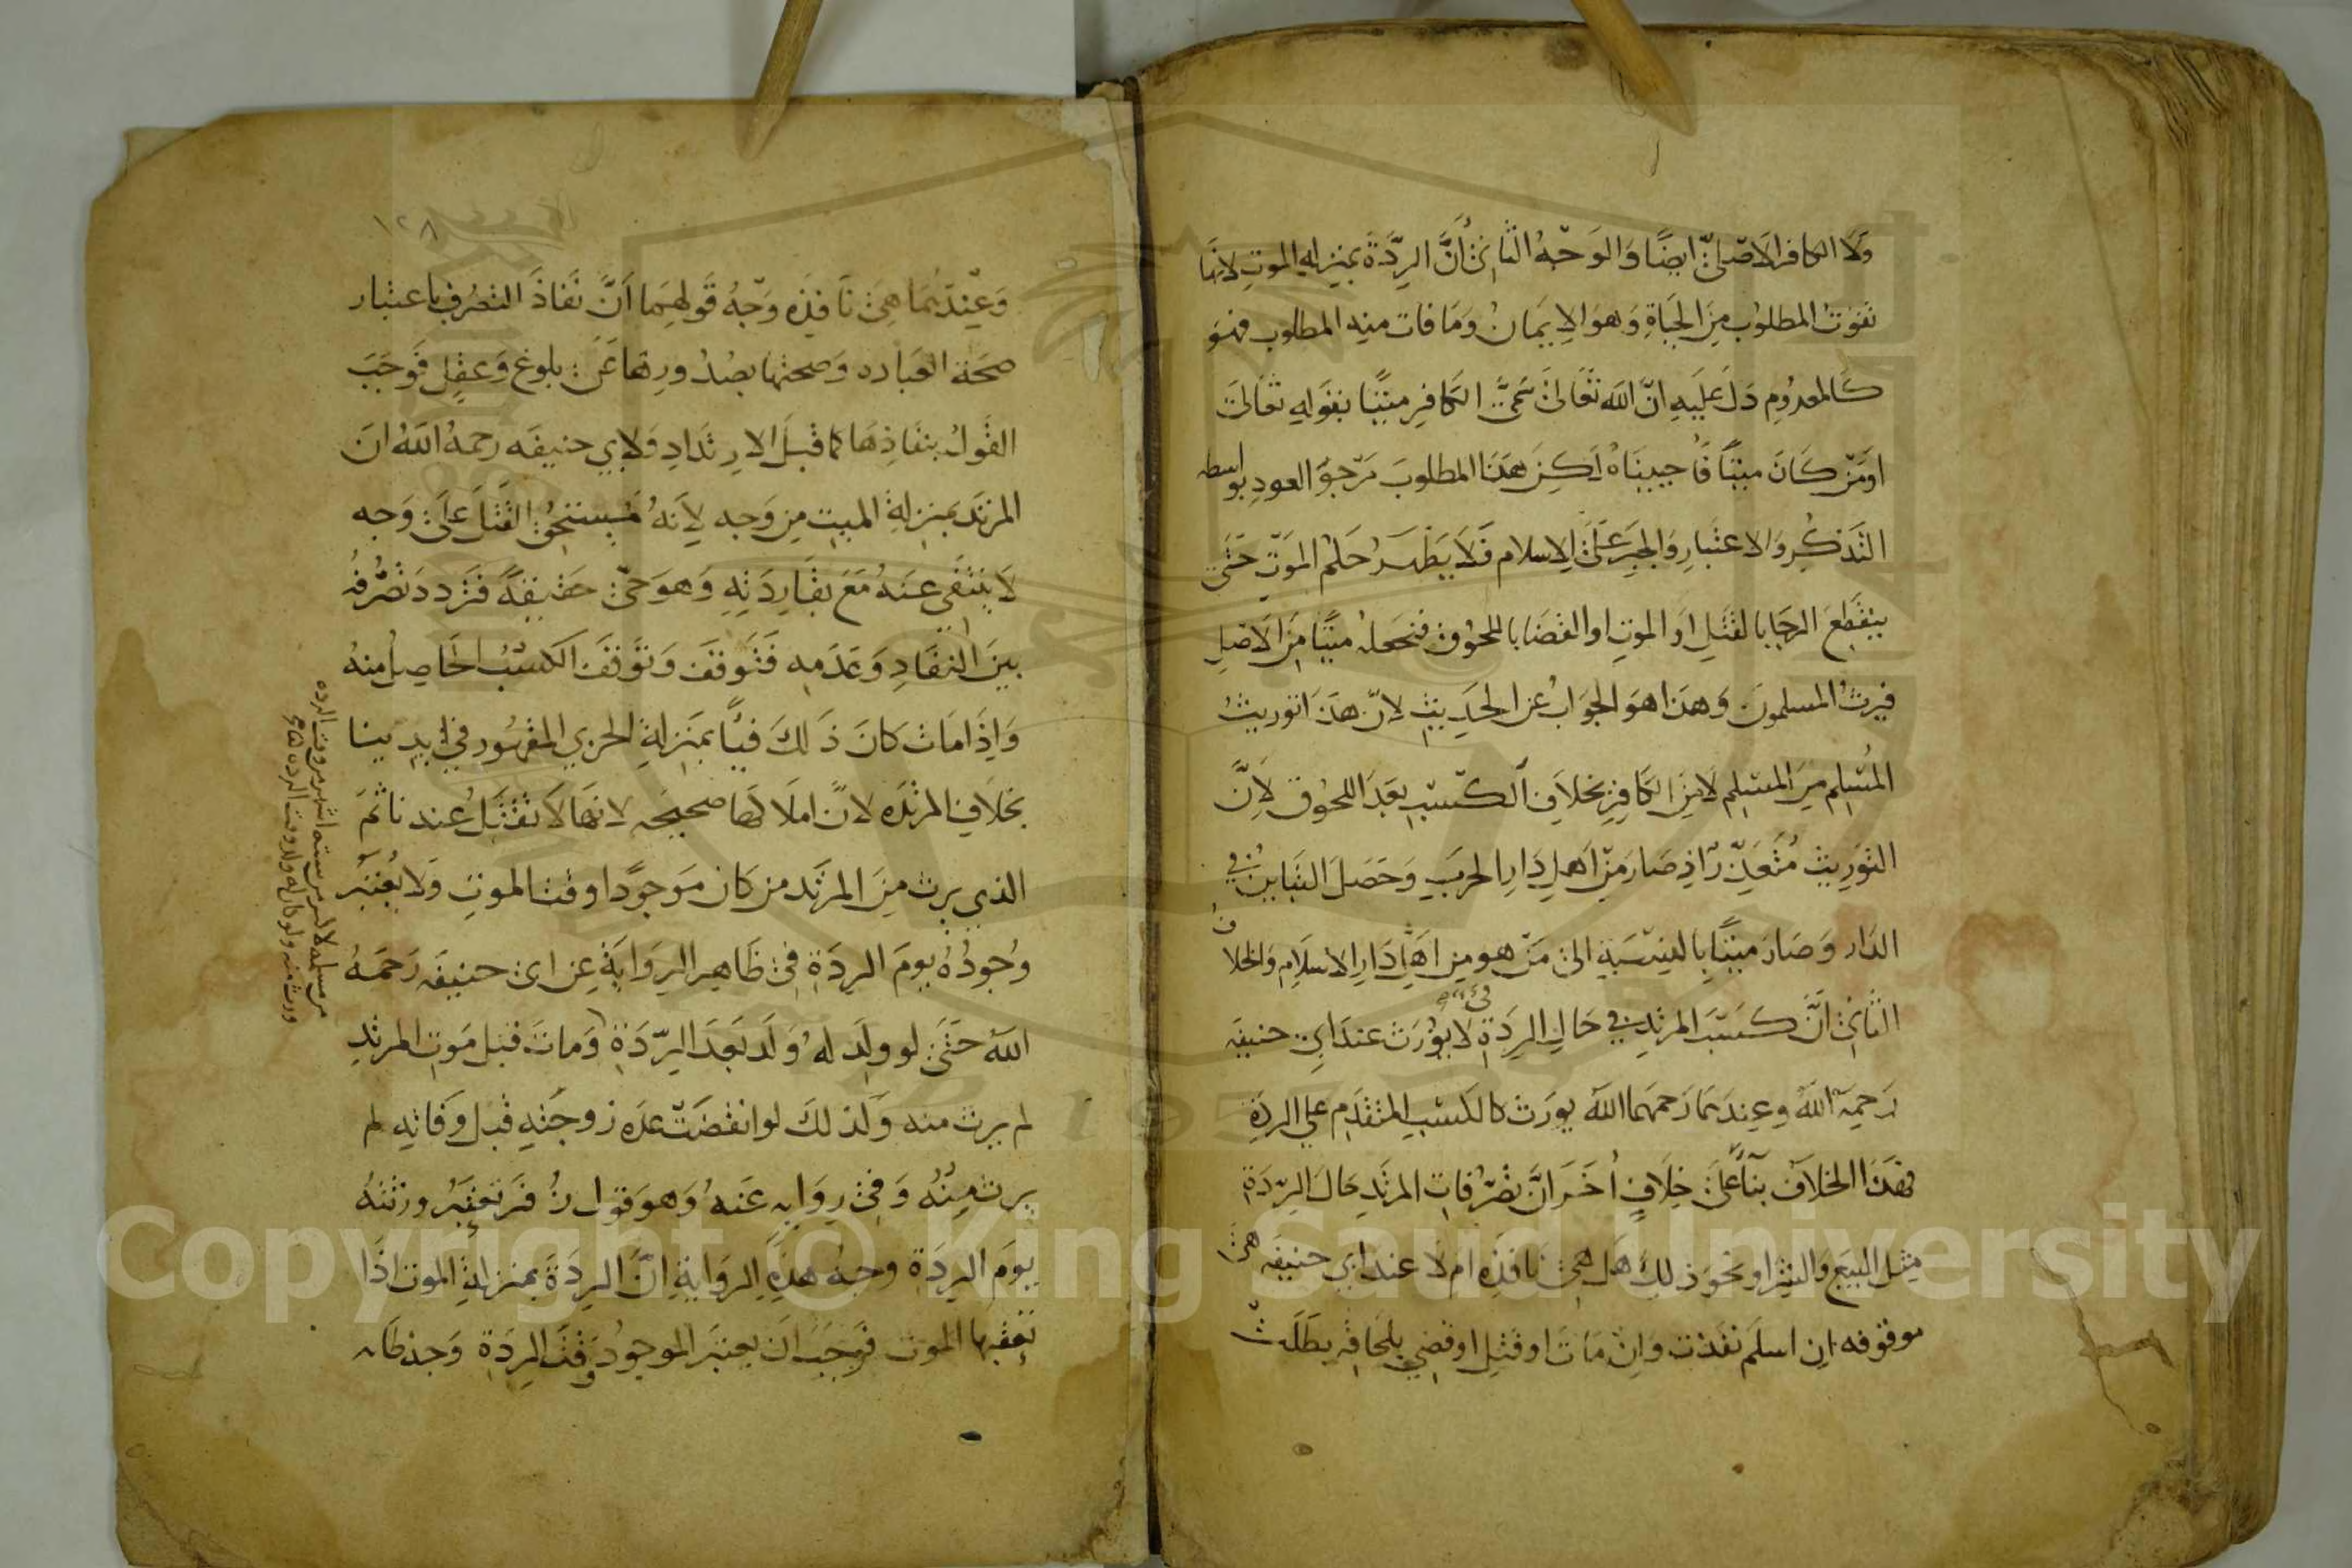 ولا الكافر الاصلىّ ايضًا وَالوَجْهُ الثانى أنَّ الرِدَّةَ بمنزله الموتِ لانها
تفوتُ المطلوبُ مِنَ الحَياةِ وَهوَ الايمَانُ وَمَا فات منه المطلوب فهوَ
كالمعدُومِ دَلّ عَليهِ انّ الله تعَالىَ سَمىَّ الكافِر ميّتًا بقوَلهِ تعَالىَ
اوَمَنْ كَانَ ميتًا فَأحييناهُ لَكِنَ هَذَا المطلوبَ مَرجوّ العودِ بواسطه
التَذكُر وَالاعتبارِ وَالجبرِ عَلىَ الاسلام فَلاَ يَظهَرُ حُكمُ الموَتِ حَتىّ
ينقَطِعَ الرجَا بالقتلِ اوَ الموتِ او القضَا باللحوُقِ فنجعلهُ ميتًا مِنَ الاَصلِ
فيَرثُ المسلمونَ وَهذَا هوَ الجوَابُ عن الحَديثِ لانّ هَذَا توريثُ
المُسْلِم مِنَ المسْلِم لا مِنَ الكَافِرِ بخلاَفِ الكسْبِ بَعدَ اللحوُق لأنَّ
التوَرِيث مُتعَذِّرٌ اذ صَارَ مِنْ اهلِ دَارِ الحربِ وَحَصَلَ التبَاينُ في
الدَار وَصَارَ ميتًا بالنِسْبَةِ الىَ مَنْ هو مِن اَهْلِ دَارِ الاسلاَمِ وَالخلاف
الثَانِى اَنَّ كسْبَ المرتدِ في حَالِ الرِدَةِ لا يُوُرَث عندَ ابى حنيفَه
رَحِمهُ اللهُ وعِندَهمَا رَحمهما اللهُ يورَث كالكسْبِ المتقدِم علي الرِدَةِ
فهَذَا الخلاَفُ بنَاًءً عَلىَ خِلاَفٍ اُخَر انَّ تصَرُّفاتِ المرتَدِ حَالَ الرِدّةِ
مِثل البيَع وَالشِرا ونحوَ ذلكَ هَل هىَ نَافذِه امْ لاَ عند ابىْ حنيفه هىَ
موقوفه ان اسلَم نفَذت وَانْ مَاتَ او قتلِ او قضِي بلحَاقهِ بطَلَتْ
١٢٨
وَعِنْدَهُمَا هِىَ نَافذَه وَجْهُ قَولِهمَا اَنَّ نَفاذَ التصَرُفِ باعتبار
صحَة العَباره وَصحتها بصُدُورِهَا عَنْ بلوغ وَعقلٍ فَوَجَبَ
القَولُ بنفَاذِهَا كما قبلَ الارتدَادِ وَلابي حنيفَه رحمهُ اللهُ انَ
المرتدَ بمنزلةِ الميتِ مِن وَجه لِاَنهُ مُسْتحِق القَتْلَ عَلىَ وَجه
لاَ ينتفَي عنهُ مَعَ بقَا رِدَتِهِ وَهوَ حَيّ حَقيقةً فَتردَدَ تَصَرُّفهُ
بَينَ النفَاذِ وَعَدَمِه فَتَوقفَ وَتوَقفَ الكسْبُ الحَاصِلُ منهُ
وَاذَا مَاتَ كانَ ذَلكَ فيًا بمَنزِلةِ الحربيِ المقهُور في ايدِينا
بخلاَفِ المرتدَه لانّ املاَكهَا صحيحَه لانهَا لاَ تقتَلُ عند نا ثمَ
الذيِ يرث مِنَ المرتَد من كان موَجوًدا وقتَ الموتِ وَلا يُعتبَر
وُجودُهُ يومَ الرِدَةِ فىِ ظَاهِر الرِوَايَةِ عن ابى حنيفَه رَحمَهُ
اللهُ حَتىَ لو ولِدَ لهُ وَلدَ بَعدَ الرِّدَةِ وَماتَ قبل مَوت المرتدِ
لم يرث منه وَكذلكَ لو انقضَتْ عدَه زوجَتهِ قبل وَفاتهِ لم
يرث مِنْهُ وَفىِ رِوَايه عَنهُ وَهوَ قول زُفَر تعتبَرُ ورثتهُ
يَومَ الرِدَةِ وجهُ هذهِ الرِوَايةِ انَّ الرِدَةَ بمنزلةِ الموت اذَا
تعَقبهَا الموَت فوَجَبَ انَ يعتبرَ الموجوُد وَقتَ الرِدَةِ وَجهْ ظاهر